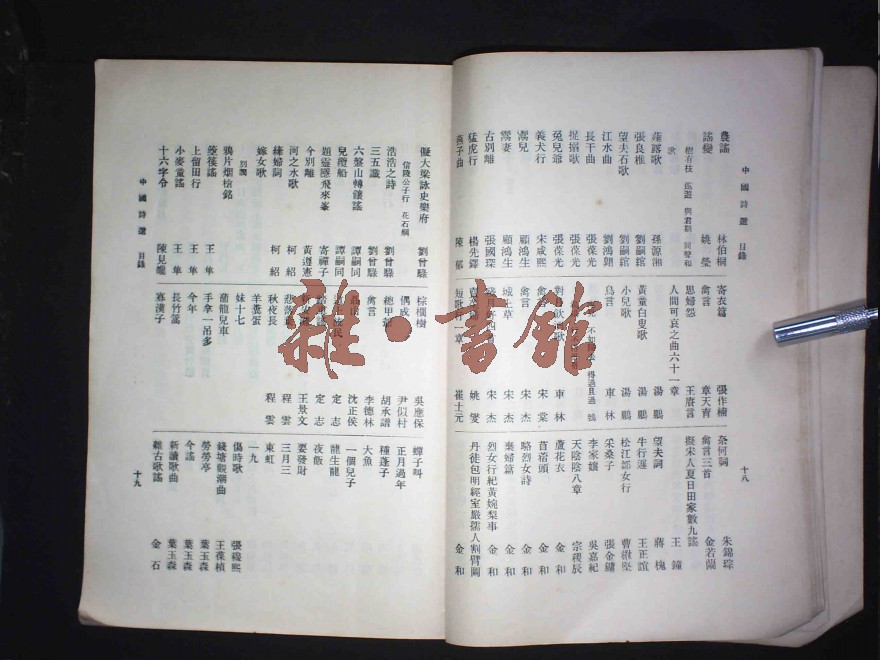 中國詩選 目錄
十八
農謠 林伯桐
謠變 姚瑩
歌
薤露歌 孫源湘
張良椎 劉嗣綰
望夫石歌 劉嗣綰
江水曲 劉鴻翺
長干曲 張葆光
捉搦歌 張葆光
兔兒爺 張葆光
義犬行 宋咸熙
鬻兒 顧鴻生
鬻妻 顧鴻生
古別離 張國琛
猛虎行 楊先鐸
燕子曲 陳郁
寄衣篇 張作楠
禽言 章天育
思婦怨 王賡言
人間可哀之曲六十一章
黃童白叟歌 湯鵬
小兒歌 湯鵬
鳥言 車林
不如歸去 得過且過
車林
宋棠
禽言 宋杰
城上草 宋杰
姚燮
短歌行一章 崔士元
奈何詞 朱錦琮
禽言三首 金若蘭
擬宋人夏日田家數九謠
王鐘
望夫詞 蔣槐
牛行遲 王正誼
松江都女行 曹楙堅
采桑子 張金鏞
李家孃 吳嘉紀
天陰陰八章 宗稷辰
蘆花衣 金和
苜蓿頭 金和
略烈女詩 金和
棄婦篇 金和
烈女行紀黃婉梨事 金和
丹徒包明經室嚴孺人割臂圖
擬大梁詠史樂府 劉曾騄
信陵公子行 花石綱
浩浩之詩 劉曾騄
三五讖 劉曾騄
六盤山轉饟謠 譚嗣同
兒纜船 譚嗣同
題靈隱飛來峯 寄禪子
今別離 黃遵憲
河之水歌 柯紹
棘婦詞 柯紹
嫁女歌
別調
鴉片烟槍銘
箜篌謠 王隼
上留田行 王隼
小麥童謠
十六字令 陳見鑨
中國詩選 目錄
十九
棕櫚樹 吳應保
偶成 尹似村
總甲 胡承譜
禽言 李德林
沈正侯
定志
定志
王景文
悲落葉 程雲
秋夜長 程雲
羊糞蛋
妹十七
蒲龍兒車
手拿一吊多
今年
長竹篙
寡漢子
蟬子叫
正月過年
種蓬子
大魚
一個兒子
龍生龍
夜飯
要發財
三月三
東虹
一九
傷時歌 張稷熙
錢塘觀潮曲 王葆楨
勞勞亭 葉玉森
今謠 葉玉森
新讀歌曲 葉玉森
雜古歌謠 金石
雜·書館